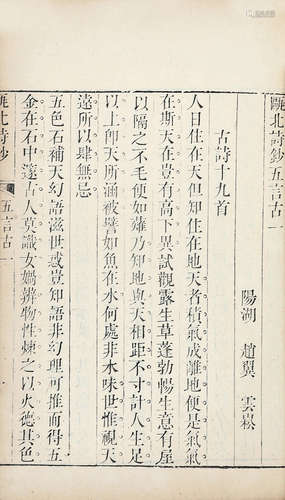 甌北詩鈔 五言古一
陽湖 趙翼 雲崧
古詩十九首
人日住在天但知住在地天者積氣成離地便是氣氣
在斯天在豈有高下異試觀露生草蓬勃暢生意有屋
以隔之不毛便如薙乃知地與天相距不寸計人生足
以上卽天所涵被譬如魚在水何處非水味世惟視天
遠所以肆無忌
五色石補天幻語滋世惑豈知語非幻理可推而得五
金在石中邃古人莫識女媧辨物性煉之以火德其色
甌北詩鈔 五言古一